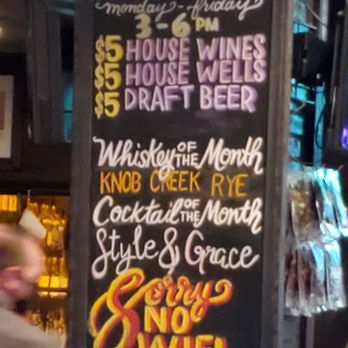 monday - friday
3-6 PM
$5 HOUSE WINES
$5 HOUSE WELLS
$5 DRAFT BEER
Whiskey OF THE Month
KNOB CREEK RYE
Cocktail OF THE Month
Style & Grace
Sorry
NO
WIFI